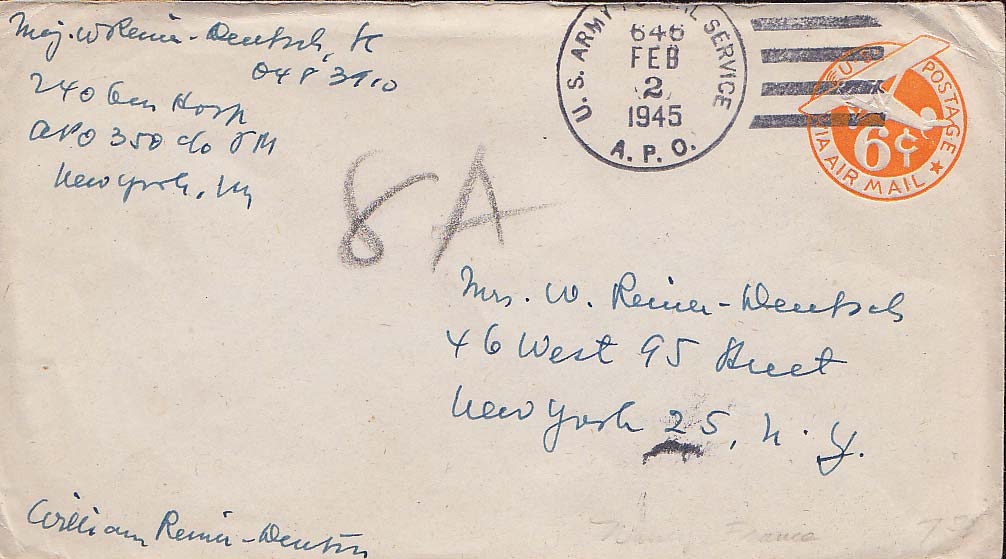 Maj. W Reiner-Deutsch,
0483910
240 Gen Hosp
APO 350 c/o PM
New York, NY
U. S. ARMY POSTAL SERVICE
646
FEB
2
1945
A. P. O.
U.S. POSTAGE
6¢
VIA AIR MAIL
8A
Mrs. W. Reiner-Deutsch
46 West 95 Street
New York 25, N. Y.
William Reiner-Deutsch
France